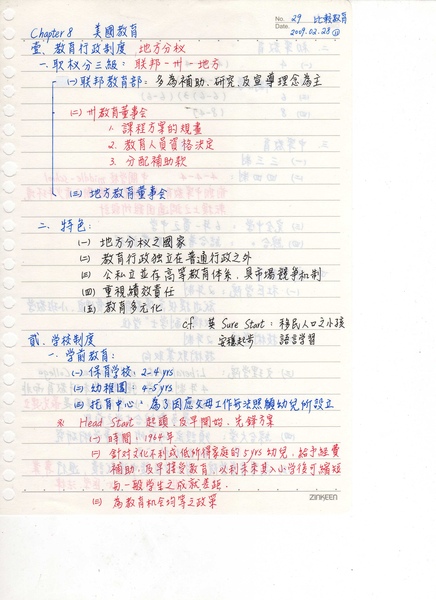 No. 29 比較教育
Date. 2009.02.28
Chapter 8 美國教育
壹、教育行政制度 地方分权
一、职权分三級：联邦-卅-地方
(一)联邦教育部：多為補助、研究、及宣導理念為主
(二)卅教育董事会
1. 課程方案的規畫
2. 教育人員資格決定
3. 分配補助款
(三)地方教育董事会
二、特色：
(一) 地方分权之國家
(二) 教育行政独立在普通行政之外
(三) 公私立並存高等教育体系，具市場競爭机制
(四) 重視績效責任
(五) 教育多元化
cf. 英 Sure Start：移民人口之小孩
安穩起步 語言学習
貳、学校制度
一、学前教育：
(一)保育学校：2-4 yrs
(二)幼稚園：4-5 yrs
(三)托育中心：為了因應父母工作無法照顧幼兒所設立
※ Head Start 起頭、及早開始、先鋒方案
(一)時間：1964年
(二) 針对文化不利或低所得家庭的5 yrs 幼兒，給予經費
補助，及早接受教育，以利未來其入小学後可縮短
与一般学生之成就差距。
(三) 為教育机会均等之政策
ZINKEEN